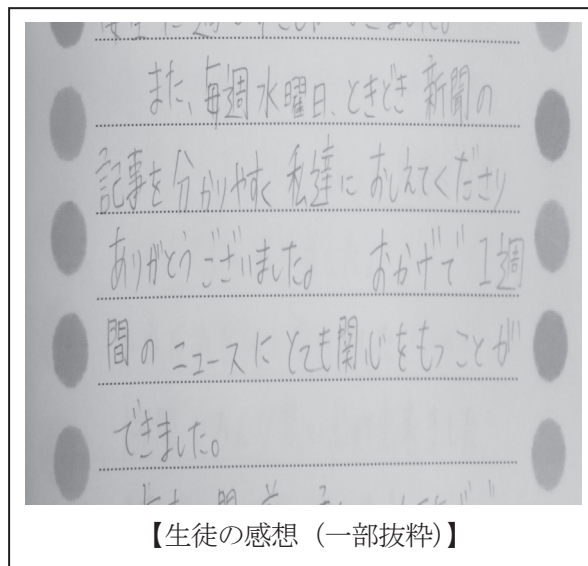 また、毎週水曜日、ときどき新聞の
記事を分かりやすく私達におしえてくださり
ありがとうございました。 おかげで1週
間のニュースにとても関心をもつことが
できました。
【生徒の感想（一部抜粋）】